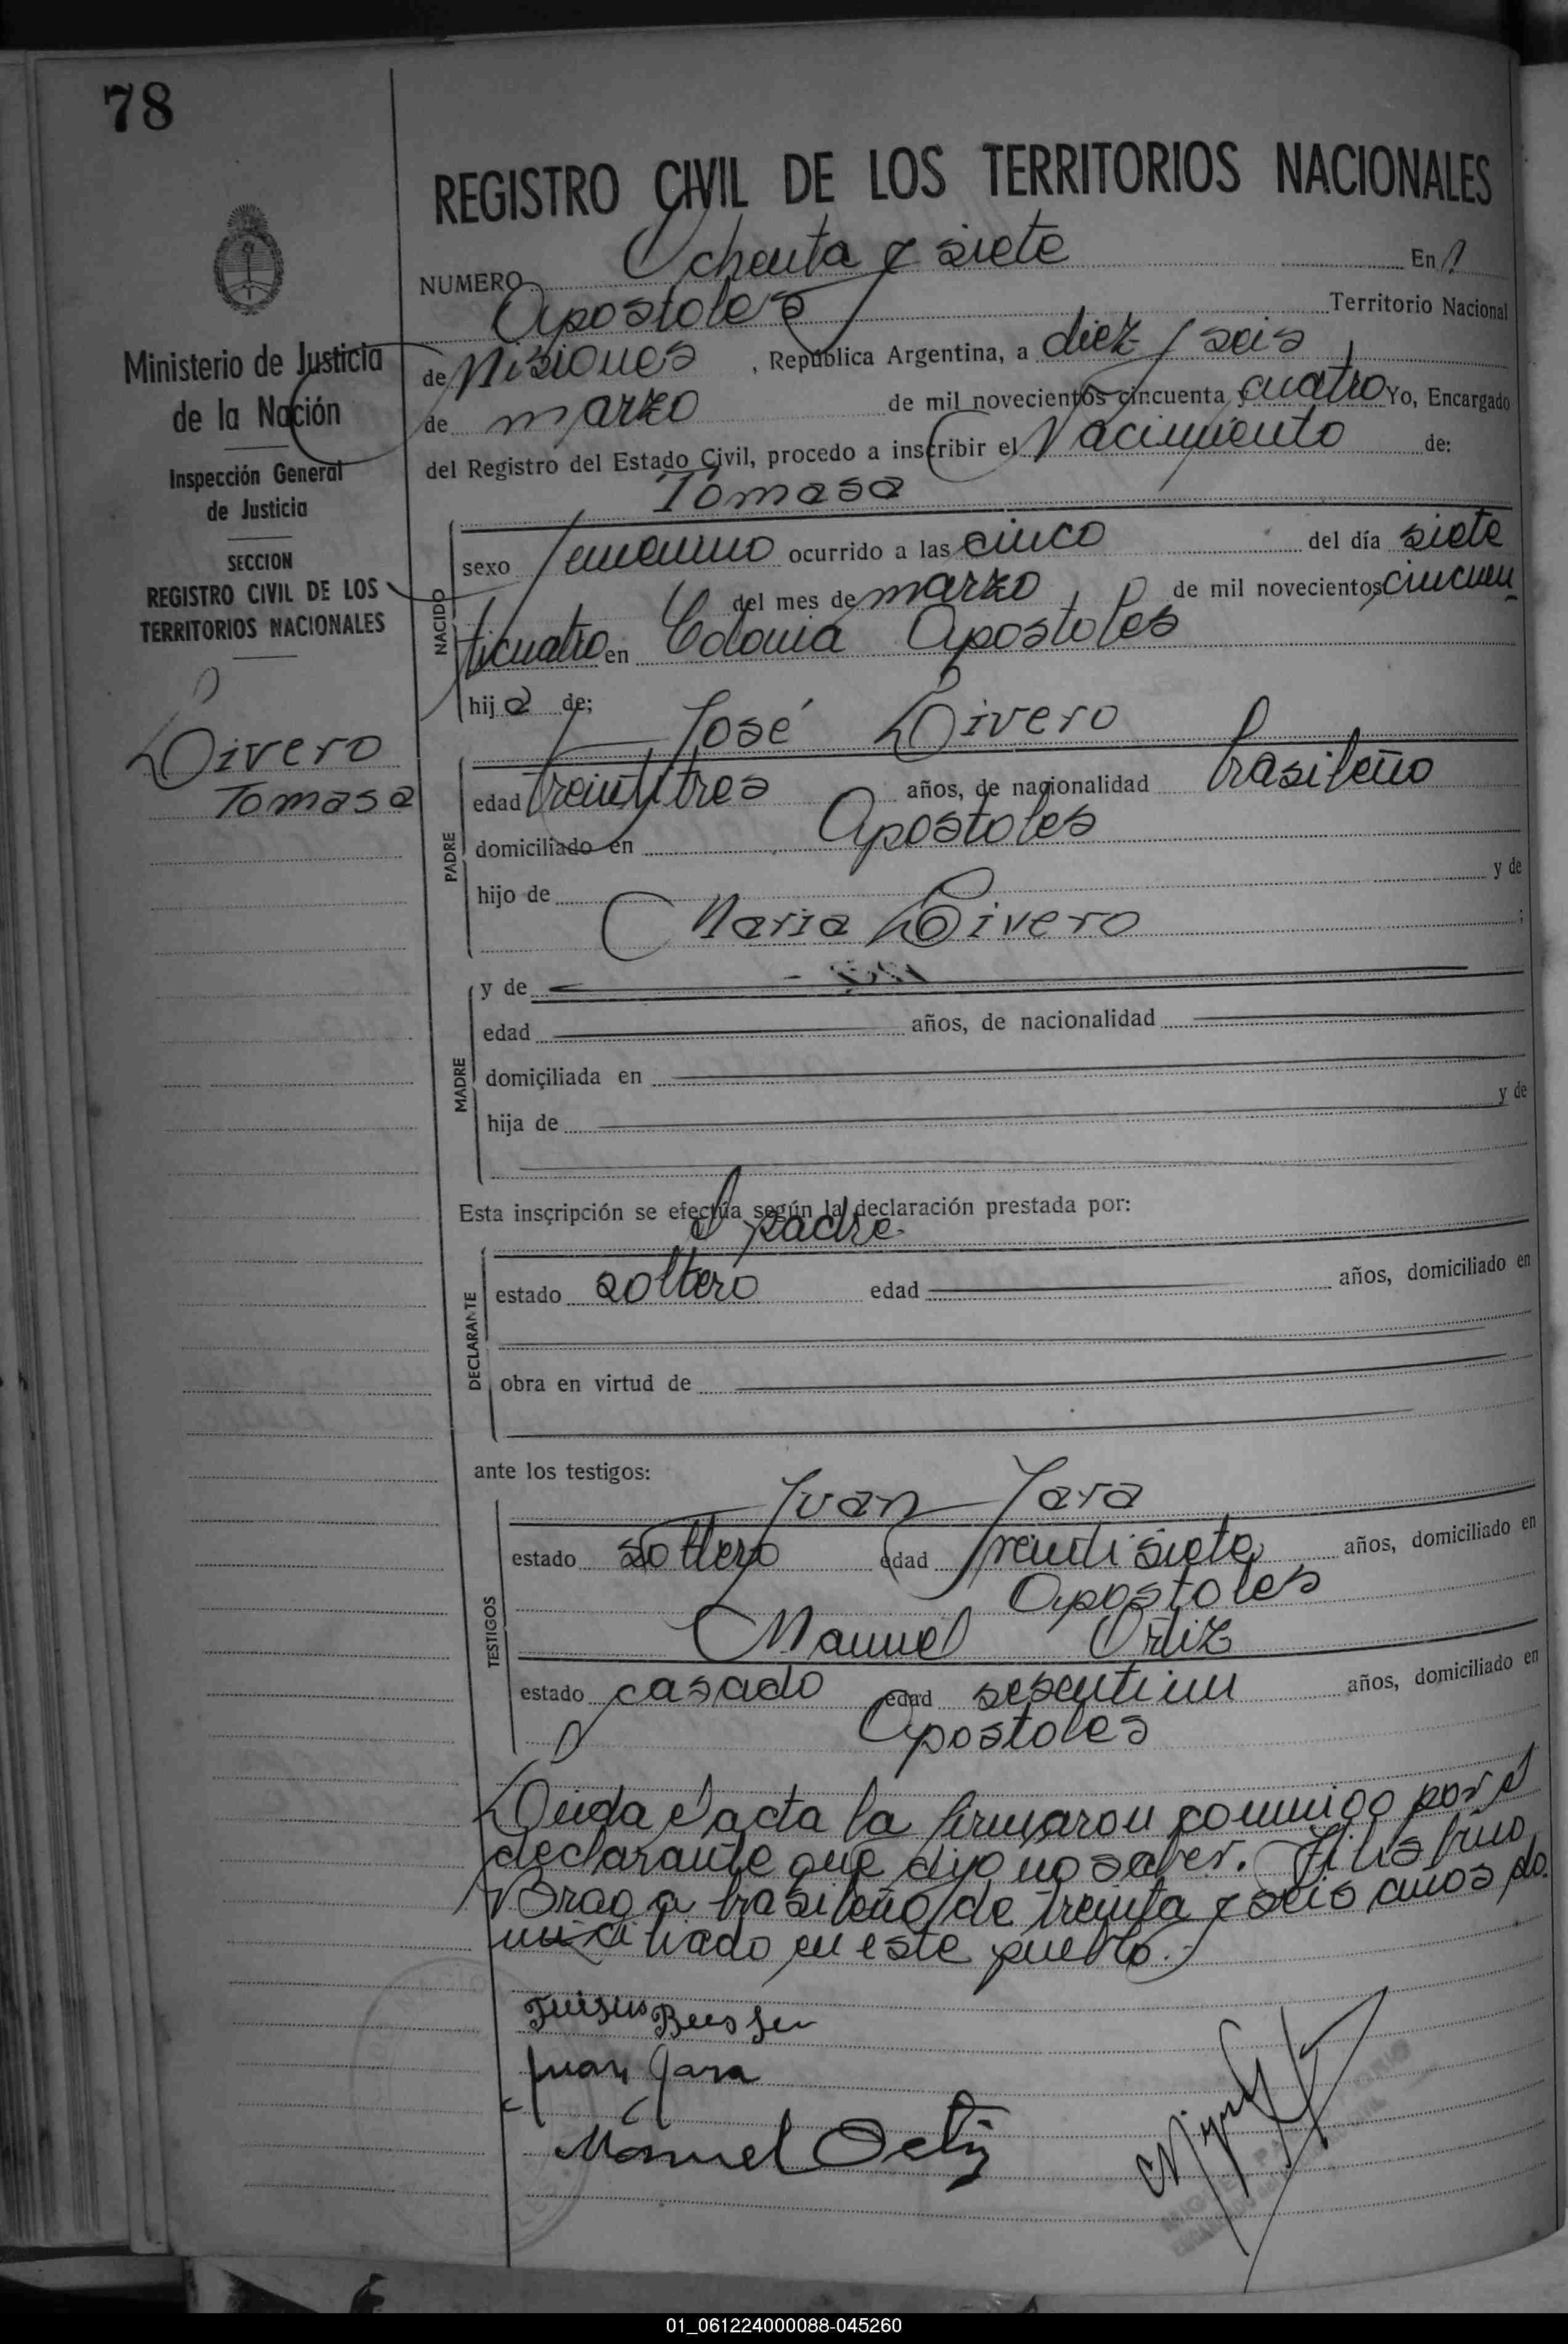 78
REGISTRO CIVIL DE LOS TERRITORIOS NACIONALES
NUMERO Ochenta y siete En
Apostoles Territorio Nacional
de Misiones, República Argentina, a diez y seis
de marzo de mil novecientos cincuenta y cuatro Yo, Encargado
del Registro del Estado Civil, procedo a inscribir el Nacimiento de:
Tomasa
Ministerio de Justicia
de la Nación
Inspección General
de Justicia
SECCION
REGISTRO CIVIL DE LOS
TERRITORIOS NACIONALES
Tomasa
NACIDO
sexo femenino ocurrido a las cinco del día siete
del mes de marzo de mil novecientos cincuen
ticuatro en Colonia Apostoles
hija de;
José
PADRE
edad treintitres años, de nacionalidad brasileño
domiciliado en Apostoles
hijo de y de
Maria ;
MADRE
y de
edad años, de nacionalidad
domiciliada en
hija de y de
Esta inscripción se efectúa según la declaración prestada por:
el padre
DECLARANTE
estado soltero edad años, domiciliado en
obra en virtud de
ante los testigos:
Juan Jara
TESTIGOS
estado soltero edad treintisiete años, domiciliado en
Apostoles
Manuel Ortiz
estado casado edad sesentiun años, domiciliado en
Apostoles
el acta la firmaron conmigo por el
declarante que dijo no saber.
Braga brasileño de treinta y seis años do
miciliado en este pueblo.
Juan Jara
Manuel Ortiz
01_061224000088-045260